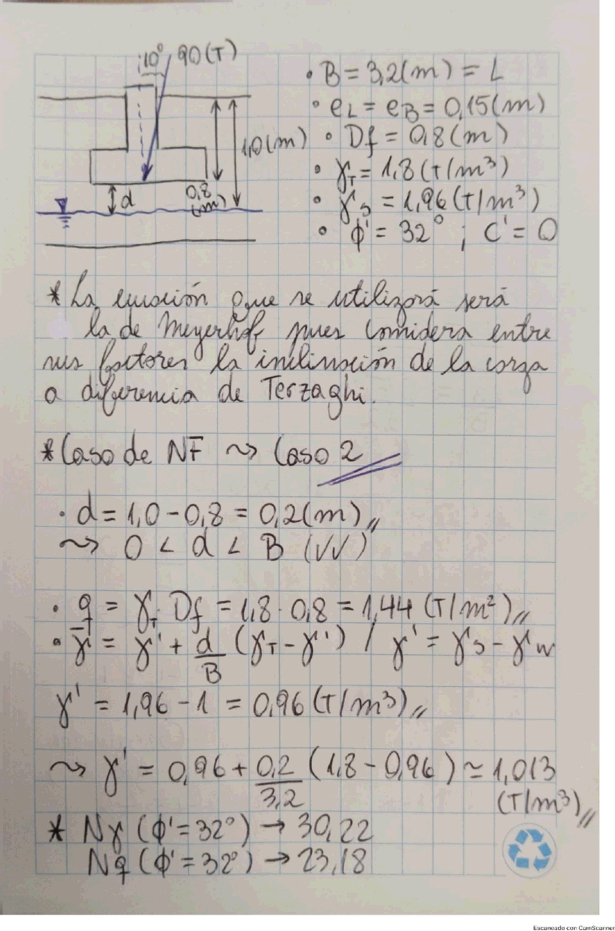 10° 90(T)
1,0(m)
d
0,8
(m)
• B = 3,2(m) = L
• eL = eB = 0,15(m)
• Df = 0,8(m)
• γT = 1,8(T/m³)
• γs = 1,96(T/m³)
• φ' = 32° ; C' = 0
* La ecuación que se utilizará será
la de Meyerhof pues considera entre
sus factores la inclinación de la carga
a diferencia de Terzaghi.
* Caso de NF ~> Caso 2
• d = 1,0 - 0,8 = 0,2(m)
~> 0 < d < B (✓✓)
• q = γT · Df = 1,8 · 0,8 = 1,44 (T/m²)
• γ̄ = γ' + d/B (γT - γ') / γ' = γs - γw
γ' = 1,96 - 1 = 0,96 (T/m³)
~> γ' = 0,96 + 0,2/3,2 (1,8 - 0,96) ≃ 1,013
(T/m³)
* Nγ (φ' = 32°) → 30,22
Nq (φ' = 32°) → 23,18
Escaneado con CamScanner